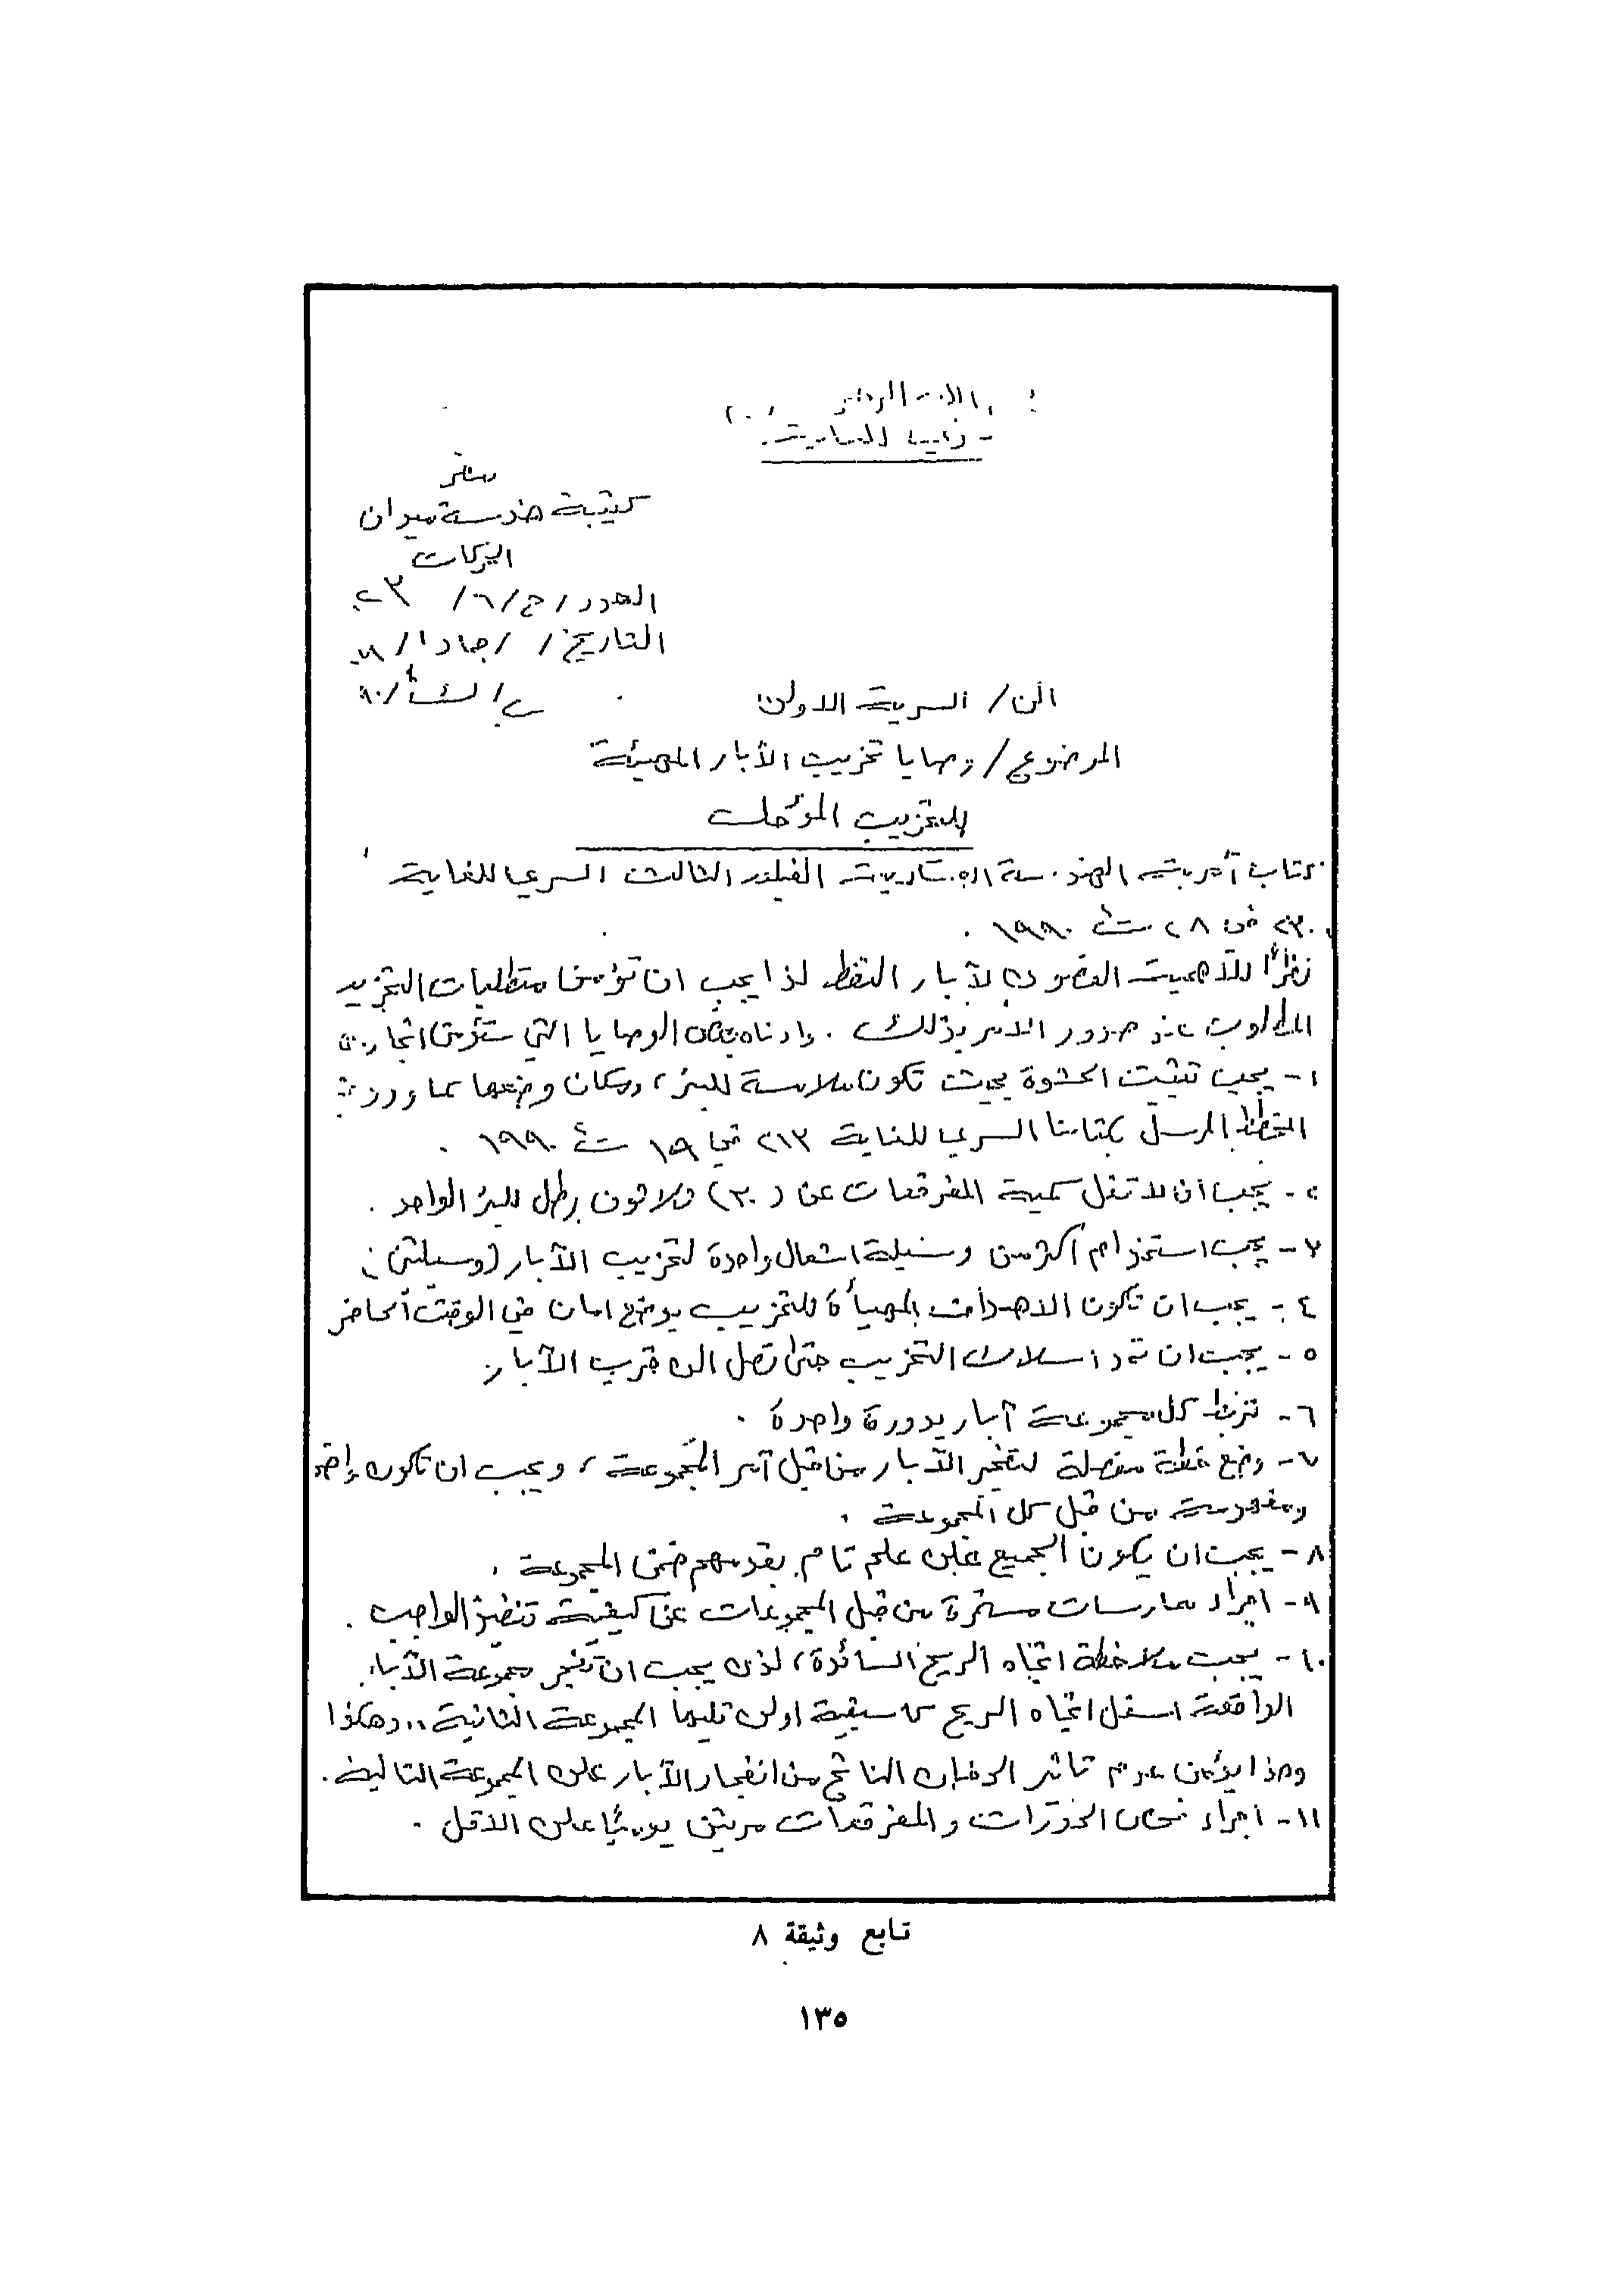 مقر
كتيبة هندسة ميدان
الحركات
العدد / ح / ٦ /
التاريخ / / جماد١ /
/ ك٢ / ٩٠
الى / السرية الاولى
الموضوع / وصايا تخريب الآبار المهيئة
للتخريب المؤجل
كتاب آمرية الهندسة الفيلق الثالث السري للغاية
في ٢٨ ت٢ ١٩٩٠ .
نظرًا للأهمية القصوى لآبار النفط لذا يجب ان تؤمن متطلبات التخريب
المطلوب عند صدور الأمر بذلك . وادناه الوصايا التي
١- يجب تثبيت الحشوة بحيث تكون ملامسة للبئر ، ومكان وضعها كما ورد
المخطط المرسل بكتابنا السري للغاية ٢١٣ في ١٩ ت٢ ١٩٩٠ .
٢- يجب أن لا تقل كمية المفرقعات عن (٣٠) ثلاثون رطل للبئر الواحد .
٣- يجب استخدام أكثر من وسيلة اشعال واحدة لتخريب الآبار (وسيلتين)
٤- يجب ان تكون الاهداف المهيأة للتخريب بوضع امان في الوقت الحاضر
٥- يجب ان اسلاك التخريب حتى تصل الى قرب الآبار
٦- تربط كل مجموعة آبار بدورة واحدة .
٧- وضع خطة مفصلة لتفجير الآبار من قبل آمر المجموعة ، ويجب ان تكون
ومفهومة من قبل كل المجموعة .
٨- يجب ان يكون الجميع على علم تام ضمن المجموعة .
٩- اجراء ممارسات مستمرة من قبل المجموعات عن كيفية تنفيذ الواجب .
١٠- يجب ملاحظة اتجاه الريح السائدة ، لذى يجب ان تفجر مجموعة الآبار
الواقعة اسفل اتجاه الريح كاسبقية اولى تليها المجموعة الثانية .. وهكذا
وهذا يؤمن عدم تاثير الدخان الناتج من انفجار الآبار على المجموعة التالية .
١١- اجراء فحص الدورات والمفرقعات مرتين يوميًا على الاقل .
تابع وثيقة ٨
١٣٥